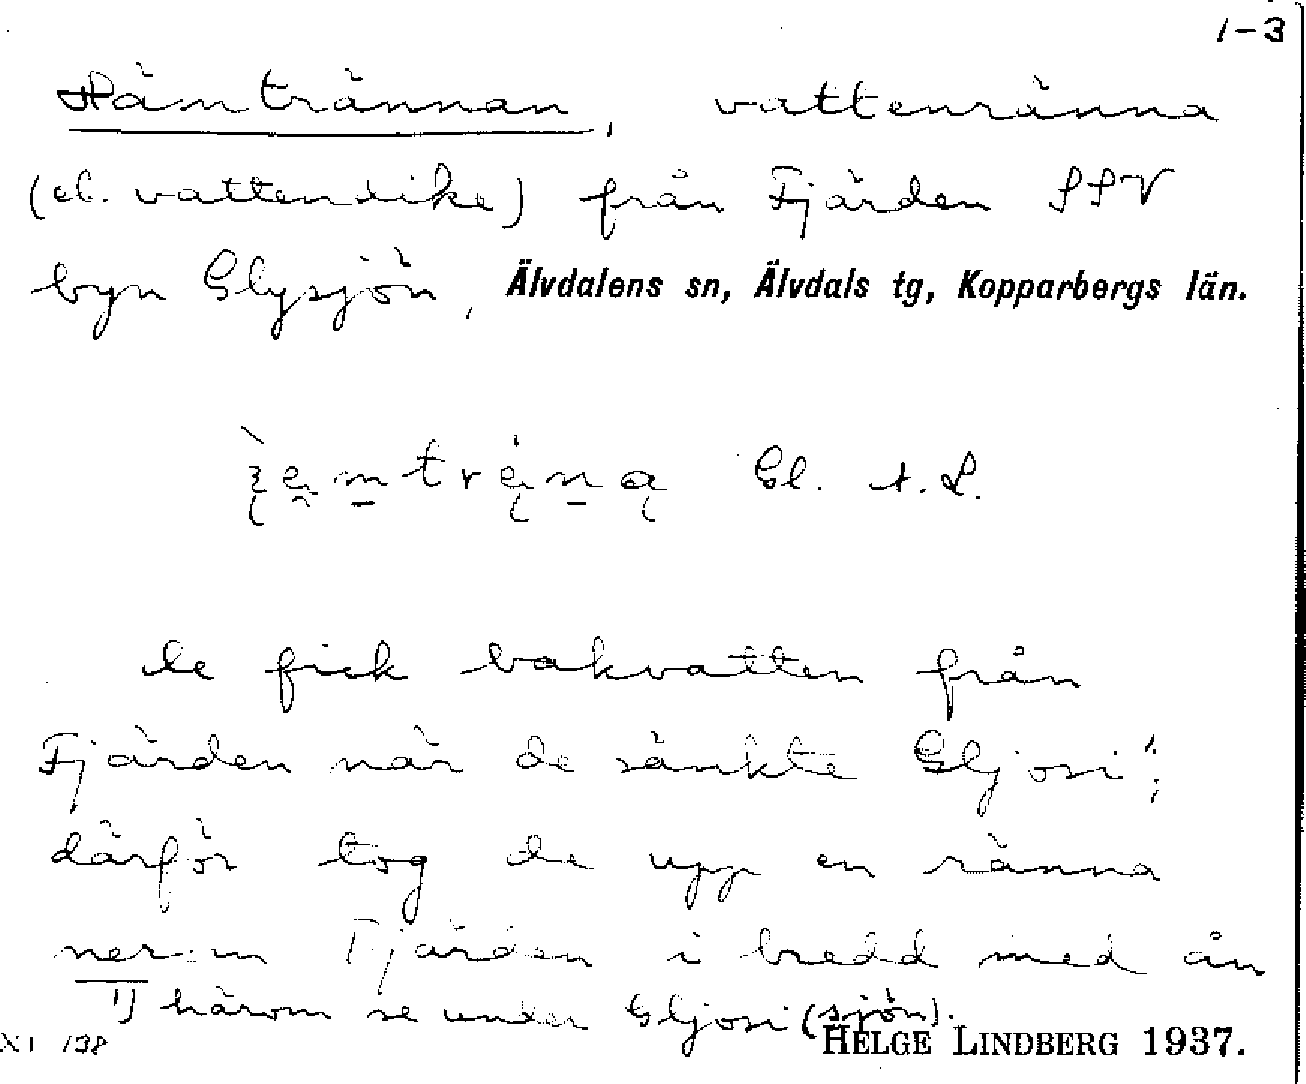 1-3
Hämtrännan, vattenränna
(el. vattendike) från Fjärden SSV
byn Glysjön, Älvdalens sn, Älvdals tg, Kopparbergs län.
Gl. A.L.
de fick bakvatten från
Fjärden när de sänkte Gljosi¹⁾;
därför tog de upp en ränna
nerom Fjärden i bredd med ån
1) härom se under Gljosi (sjön).
XI 138 HELGE LINDBERG 1937.